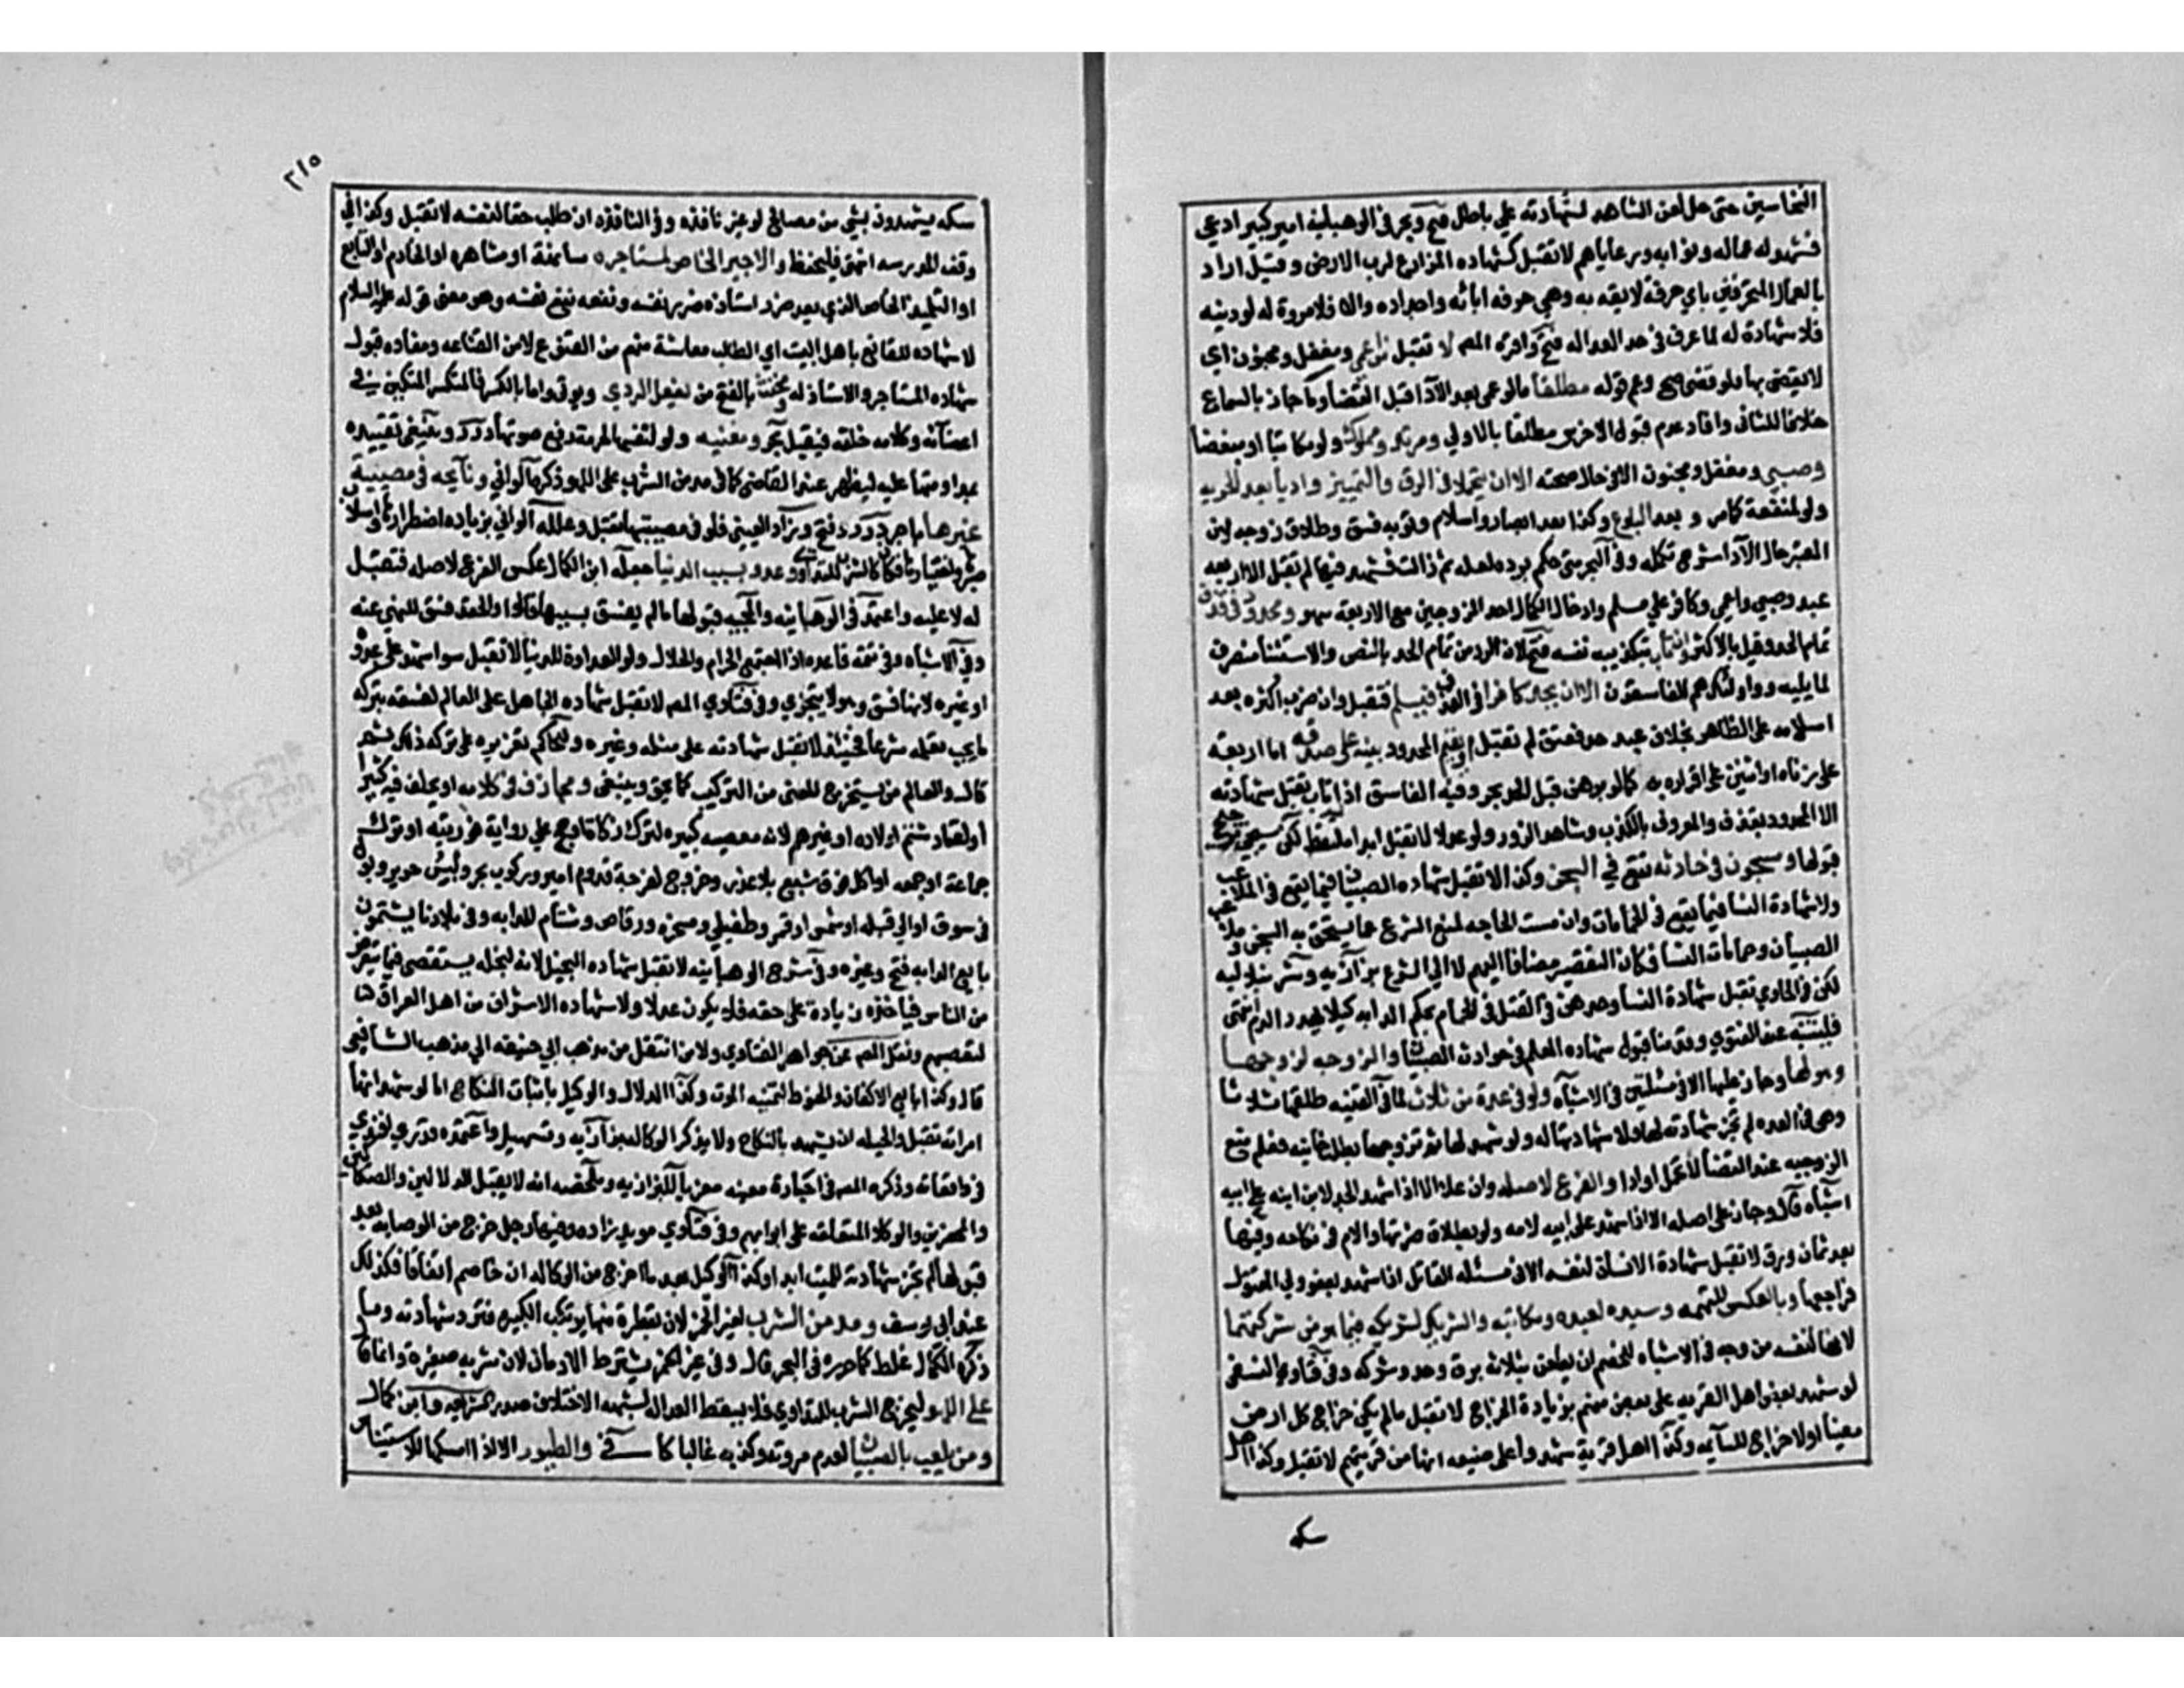 النخاسين حتى حل لعن الشاهد لشهادته على باطل فتح وبحر وفي الوهبانية امير كبير ادعى
فشهد له عماله ونوابه ورعاياهم لا تقبل كشهاده المزارع لرب الارض وقيل اراد
بالعمال المحترفين باي حرفة لايقه به وهي حرفه ابائه واجداده والا فلا مروة له لو دنيئه
فلا شهادة له لما عرف في حد العداله فتح واقره المص لا تقبل من اعمى ومغفل ومجنون اي
لا يقضى بها ولو قضى صح وعم قوله مطلقا ما لو عمى بعد الآدا قبل القضا وما جاز بالسماع
خلافا للثاني وافاد عدم قبول الاخرس مطلقا بالاولى ومرتد ومملوك ولو مكاتبا او مبعضا
وصبي ومغفل ومجنون الا في حال صحته الا ان يتحملا في الرق والتمييز واديا بعد الحريه
ولو لمعتقه كما مر و بعد البلوغ وكذا بعد ابصار واسلام وتوبه فسق وطلاق زوجه لان
المعتبر حال الآدا شرح تكمله وفي البحر متى حكم برده لعله ثم زالت فشهد فيها لم تقبل الا اربعه
عبد وصبي واعمى وكافر على مسلم وادخال الكمال احد الزوجين مع الاربعة سهو ومحدود في قذف
تمام الحد وقيل بالاكثر وان تاب بتكذيبه نفسه فتح لان الرد من تمام الحد بالنص والاستثنا منصرف
لما يليه وهو واولئك هم الفاسقون الا ان يحد كافرا في القذف فيسلم فتقبل وان ضرب اكثره بعد
اسلامه على الظاهر بخلاف عبد حد فعتق لم تقبل او يقيم المحدود بينة على صدقه اما اربعة
على زناه او اثنين على اقراره به كما لو برهن قبل الحد بحر وفيه الفاسق اذا تاب تقبل شهادته
الا المحدود بقذف والمعروف بالكذب وشاهد الزور ولو عدلا لا تقبل ابدا ملتقط لكن سيجي ترجيح
قبولها ومسجون في حادثه تقع في السجن وكذا لا تقبل شهاده الصبيان فيما يقع في الملاعب
ولا شهادة النسا فيما يقع في الحمامات وان مست الحاجه لمنع الشرع عما يستحق به السجن وملاعب
الصبيان وحمامات النسا فكان التقصير مضافا اليهم لا الى الشرع بزازيه وشرنبلاليه
لكن في الحاوي تقبل شهادة النسا وحدهن في القتل في الحمام بحكم الديه كيلا يهدر الدم انتهى
فليتنبه عند الفتوى وقدمنا قبول شهاده المعلم في حوادث الصبيان والزوجه لزوجها
وهو لها وجاز عليها الا في مسئلتين في الاشباه ولو في عدة من ثلاث لما في القنيه طلقها ثلاثا
وهي في العده لم تجز شهادته لها ولا شهادتها له ولو شهد لها ثم تزوجها بطلت خانيه فعلم منع
الزوجيه عند القضا لا تحمل او ادا والفرع لاصله وان علا الا اذا شهد الجد لابن ابنه على ابيه
اشباه قال وجاز على اصله الا اذا شهد على ابيه لامه ولو بطلاق ضرتها والام في نكاحه وفيها
بعد ثمان ورق لا تقبل شهادة الانسان لنفسه الا في مسئله القاتل اذا شهد بعفو ولي المقتول
فراجعها وبالعكس للتهمه وسيده لعبده ومكاتبه والشريك لشريكه فيما هو من شركتهما
لانها لنفسه من وجه وفي الاشباه للخصم ان يطعن بثلاثه برق وحد وشركه وفي فتاوى النسفي
لو شهد بعض اهل القريه على بعض منهم بزيادة الخراج لا تقبل مالم يكن خراج كل ارض
معينا او لا خراج للشاهد وكذا اهل قرية شهدوا على ضيعه انها من قريتهم لا تقبل وكذا اهل
سكه
٢١٥
سكه يشهدون بشي من مصالحه لو غير نافذه وفي النافذه ان طلب حقا لنفسه لا تقبل وكذا في
وقف المدرسه انتهى فليحفظ والاجير الخاص لمستاجره مسانهة او مشاهره او الخادم او التابع
او التلميذ الخاص الذي يعد ضرر استاذه ضرر نفسه ونفعه نفع نفسه وهو معنى قوله عليه السلام
لا شهاده للقانع باهل البيت اي الطالب معاشه منهم من القنوع لا من القناعه ومفاده قبول
شهاده المستاجر والاستاذ له ومخنث بالفتح من يفعل الردي ويوتى واما بالكسر فالمتكسر المتلين في
اعضائه وكلامه خلقة فتقبل بحر ومغنيه ولو لنفسها لحرمة رفع صوتها درر وينبغي تقييده
بمداومتها عليه ليظهر عند القاضي كما في مدمن الشرب على اللهو ذكره الواني ونايحه في مصيبة
غيرها باجر درر وفتح وزاد العيني فلو في مصيبتها تقبل وعلله الواني بزيادة اضطرارها وانسلاب
صبرها واختيارها فكان كالشرب للتداوي وعدو بسبب الدنيا جعله ابن الكمال عكس الفرع لاصله فتقبل
له لا عليه واعتمد في الوهبانيه والمحبيه قبولها مالم يفسق بسببها قالوا والحقد فسق للنهي عنه
وفي الاشباه في تتمه قاعده اذا اجتمع الحرام والحلال ولو العداوة للدنيا لا تقبل سوا شهد على عدوه
او غيره لانها فسق وهو لا يتجزى وفي فتاوى المص لا تقبل شهاده الجاهل على العالم لفسقه بتركه
ما يجب تعلمه شرعا فحينئذ لا تقبل شهادته على مثله وغيره وللحاكم تعزيره على تركه ذلك ثم
قال والعالم من يستخرج المعنى من التركيب كما يحق وينبغي ومجازف في كلامه او يحلف فيه كثيرا
او اعتاد شتم اولاده او غيرهم لانه معصيه كبيره كترك زكاة او حج على رواية فوريته او ترك
جماعة او جمعه او اكل فوق شبع بلا عذر وخروج لفرجة قدوم امير وركوب بحر ولبس حرير وبول
في سوق او الى قبله او شمس او قمر وطفيلي ومسخره ورقاص وشتام للدابه وفي بلادنا يشتمون
بايع الدابه فتح وغيره وفي شرح الوهبانيه لا تقبل شهاده البخيل لانه لبخله يستقصي فيما يتقرض
من الناس فياخذ زيادة على حقه فلا يكون عدلا ولا شهاده الاشراف من اهل العراق
لتعصبهم ونقل المص عن جواهر الفتاوى ولا من انتقل من مذهب ابي حنيفه الى مذهب الشافعي
قال وكذا بايع الاكفان والحنوط لتمنيه الموت وكذا الدلال والوكيل باثبات النكاح اما لو شهد انها
امراته تقبل والحيله ان يشهد بالنكاح ولا يذكر الوكاله بزازيه وتسهيل واعتمده قدري افندي
في واقعاته وذكره المص في اجارة معينه معزيا للبزازيه وملخصه انه لا تقبل الدلالين والصكاكين
والمحضرين والوكلا المفتعله على ابوابهم وفي فتاوى مويد زاده وفيها وصي اخرج من الوصايه بعد
قبولها لم تجز شهادته للميت ابدا وكذا الوكيل بعد ما اخرج من الوكاله ان خاصم اتفاقا فكذلك
عند ابي يوسف ومدمن الشرب لغير الخمر لان بقطرة منها يرتكب الكبيره فترد شهادته وما
ذكره الكمال غلط كما حرره في البحر قال وفي غير الخمر يشترط الادمان لان شربه صغيرة وانما قال
على اللهو ليخرج الشرب للتداوي فلا يسقط العداله لشبهة الاختلاف صدر الشريعه وابن كمال
ومن يلعب بالصبيان لعدم مروته وكذبه غالبا كافي والطيور الا اذا امسكها للاستيناس